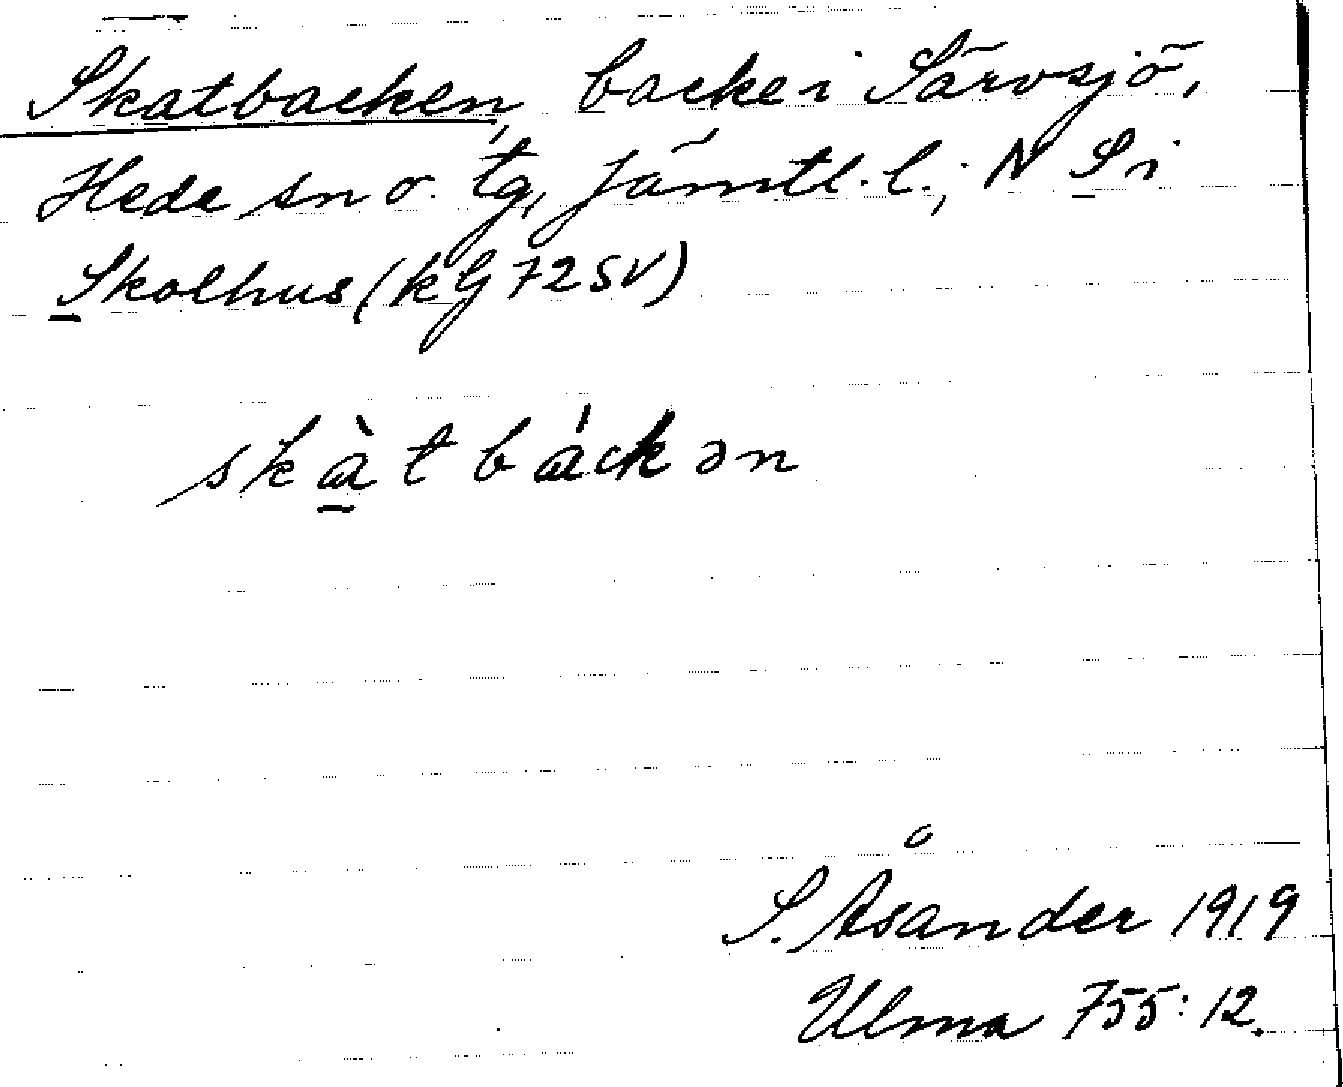 Skatbacken, backe i Särvsjö,
Hede sn o. tg, Jämtl. l.; N S i
Skolhus (kG 72 SV)
skàtbáckən
S. Åsander 1919
Ulma 755:12.